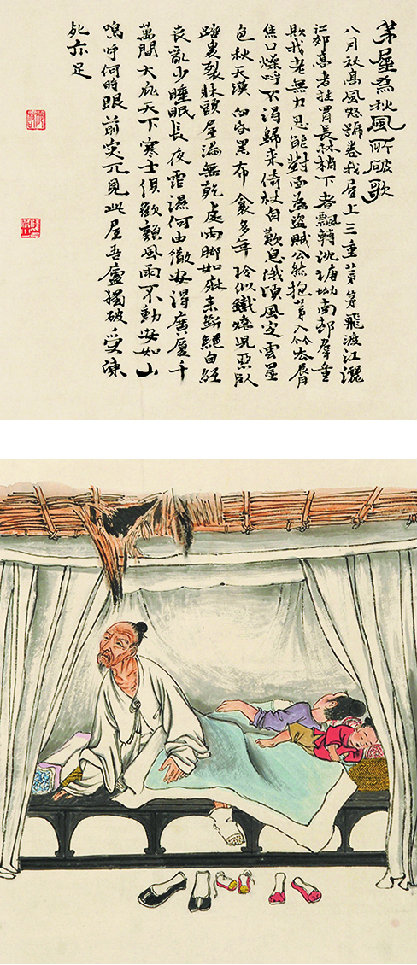 茅屋為秋風所破歌
八月秋高風怒號卷我屋上三重茅茅飛渡江灑
江郊高者挂罥長林梢下者飄轉沉塘坳南村群童
欺我老無力忍能對面為盜賊公然抱茅入竹去唇
焦口燥呼不得歸來倚杖自歎息俄頃風定雲墨
色秋天漠漠向昏黑布衾多年冷似鐵嬌兒惡臥
踏裏裂牀頭屋漏無乾處雨腳如麻未斷絕自經
喪亂少睡眠長夜霑濕何由徹安得廣廈千
萬間大庇天下寒士俱歡顏風雨不動安如山
嗚呼何時眼前突兀見此屋吾廬獨破受凍
死亦足